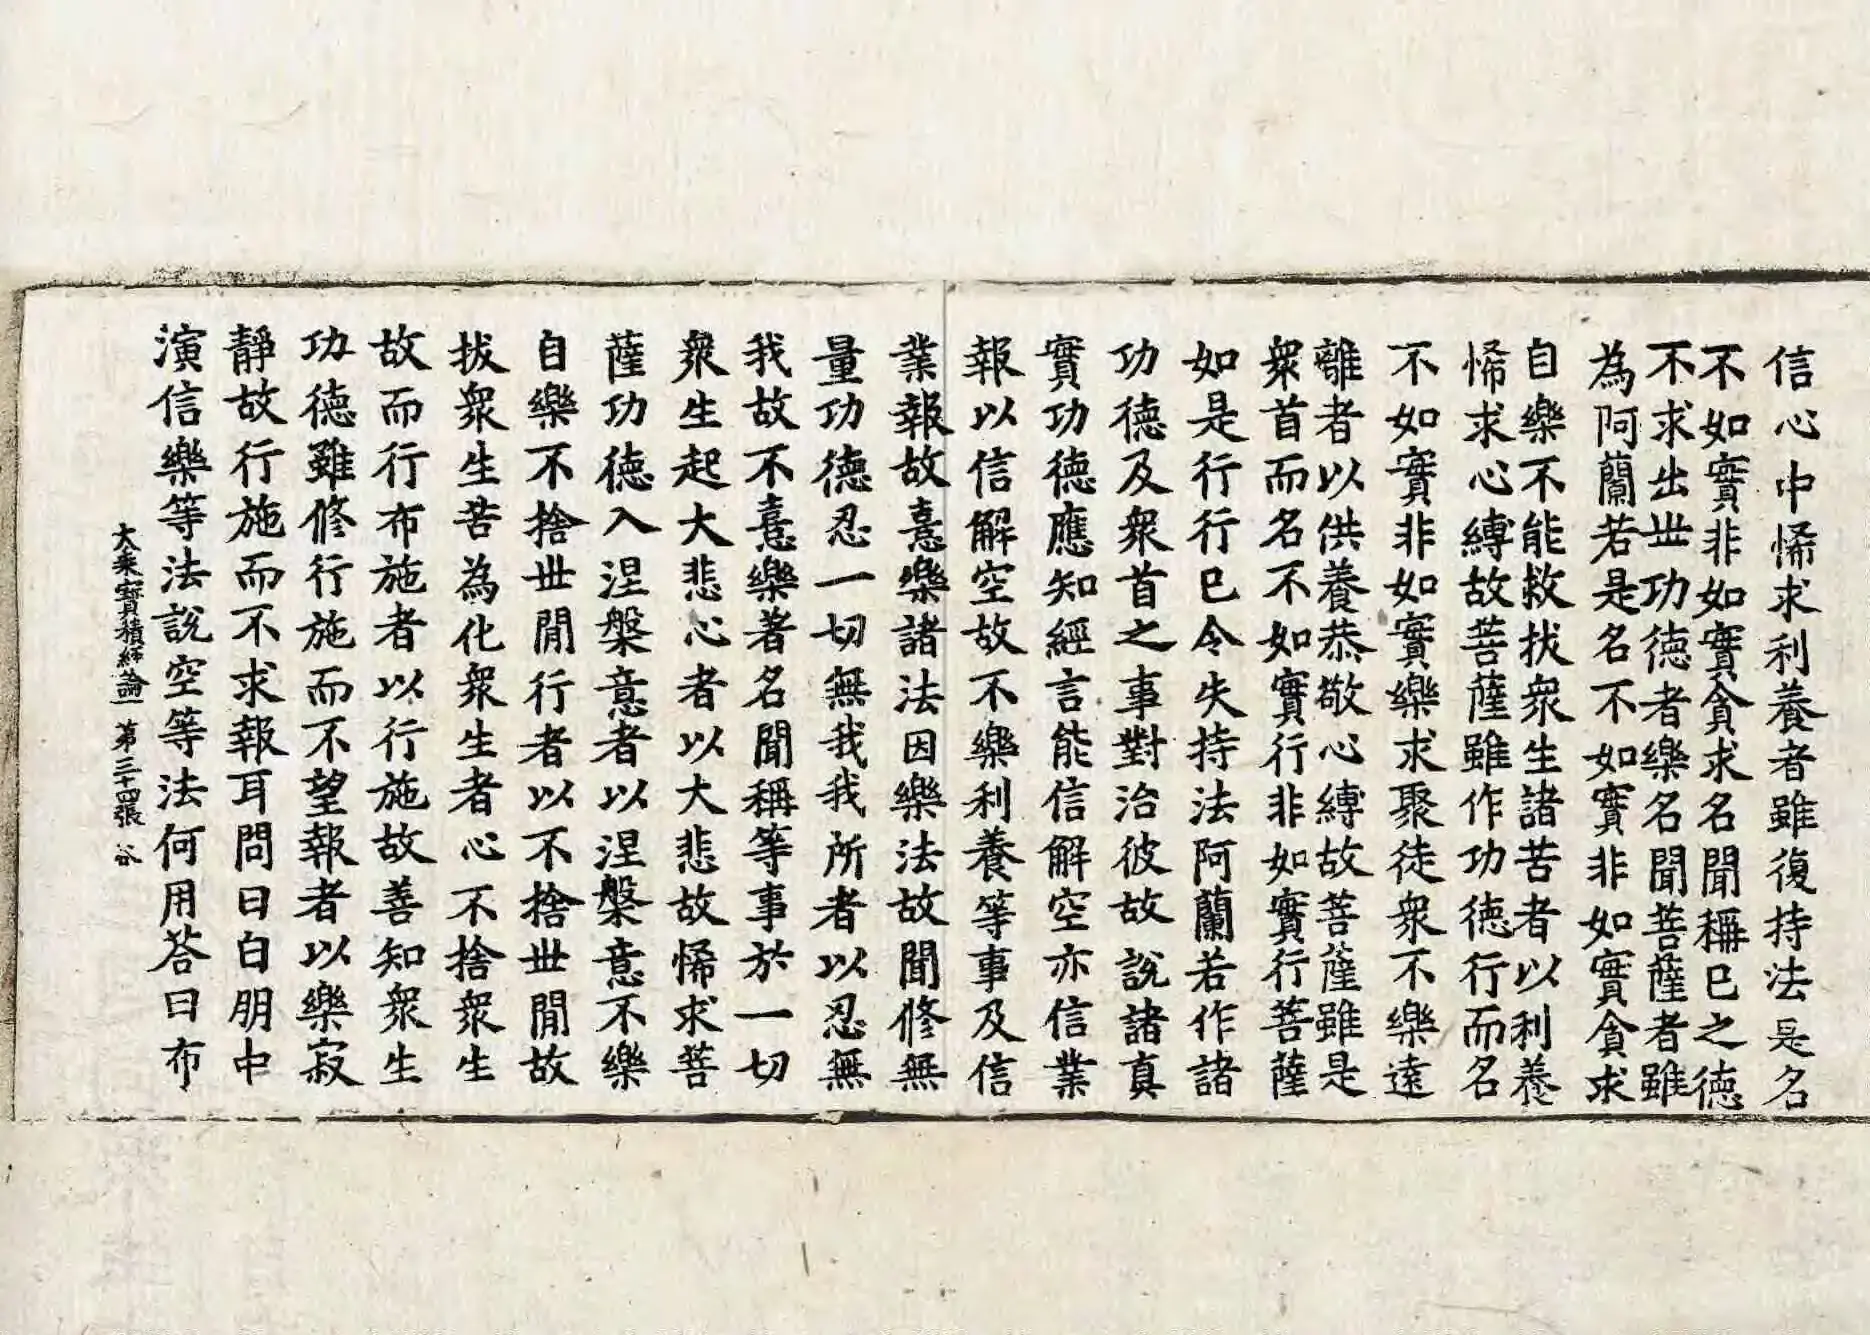 信心中悕求利養者雖復持法是名
不如實非如實貪求名聞稱已之德
不求出世功德者樂名聞菩薩者雖
為阿蘭若是名不如實非如實貪求
自樂不能救拔衆生諸苦者以利養
悕求心縛故菩薩雖作功德行而名
不如實非如實樂求聚徒衆不樂遠
離者以供養恭敬心縛故菩薩雖是
衆首而名不如實行非如實行菩薩
如是行行已令失持法阿蘭若作諸
功德及衆首之事對治彼故說諸真
實功德應知經言能信解空亦信業
報以信解空故不樂利養等事及信
業報故憙樂諸法因樂法故聞修無
量功德忍一切無我我所者以忍無
我故不憙樂著名聞稱等事於一切
衆生起大悲心者以大悲故悕求菩
薩功德入涅槃意者以涅槃意不樂
自樂不捨世閒行者以不捨世閒故
拔衆生苦為化衆生者心不捨衆生
故而行布施者以行施故善知衆生
功德雖修行施而不望報者以樂寂
靜故行施而不求報耳問曰白朋中
演信樂等法說空等法何用荅曰布
大乘寶積經論一 第三十四張 谷